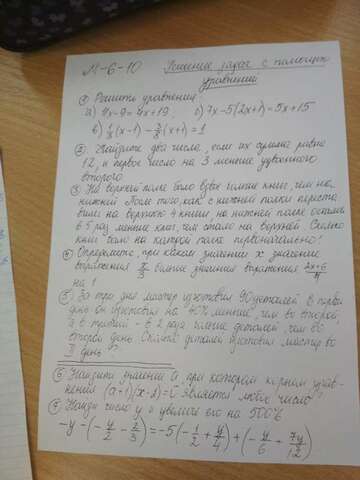 М-6-10 Решение задач с помощью
уравнений
① Решить уравнения:
а) 7x-9=4x+19; б) 7x-5(2x+1)=5x+15
в) (x-1) - (x+1)=1
② Найдите два числа, если их сумма равна
12, и первое число на 3 меньше удвоенного
второго
③ На верхней полке было вдвое больше книг, чем на
нижней. После того, как с нижней полки переста
вили на верхнюю 4 книги, на нижней полке осталось
в 5 раз меньше книг, чем стало на верхней. Сколько
книг было на каждой полке первоначально?
④ Определите, при каком значении x значение
выражения x/3 больше значения выражения (2x+6)/
на 1
⑤ За три дня мастер изготовил 90 деталей. В первый
день он изготовил на 40% меньше, чем во второй,
а в третий - в 2 раза больше деталей, чем во
второй день. Сколько деталей изготовил мастер во
день?
⑥ Найдите значение a, при котором корнем урав-
нения (a+1)(x-2)=0 является любое число
⑦ Найди число y и увеличь его на 500%
-y-(-y/2-2/3)=-5(-1/2+y/4)+(-y/6+7y/12)